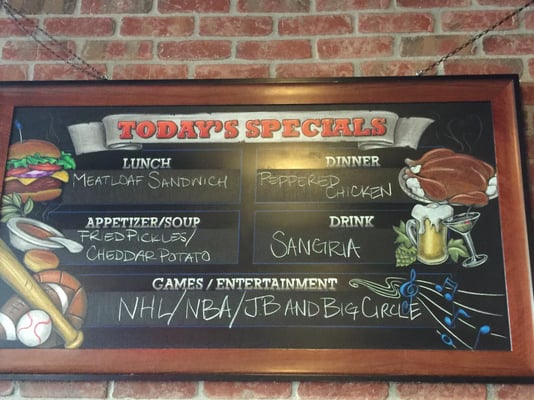 TODAY'S SPECIALS
LUNCH
MEATLOAF SANDWICH
DINNER
PEPPERED
CHICKEN
APPETIZER/SOUP
FRIED PICKLES/
CHEDDAR POTATO
DRINK
SANGRIA
GAMES / ENTERTAINMENT
NHL/NBA/JB AND BIG CIRCLE